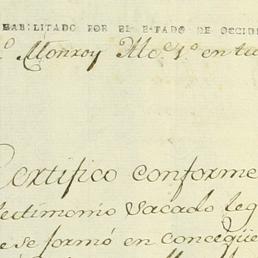 HABILITADO POR EL ESTADO DE OCCID
Monroy Me. 1.º en tu
Certifico conforme
testimonio sacado leg
e se formó en conceqüe